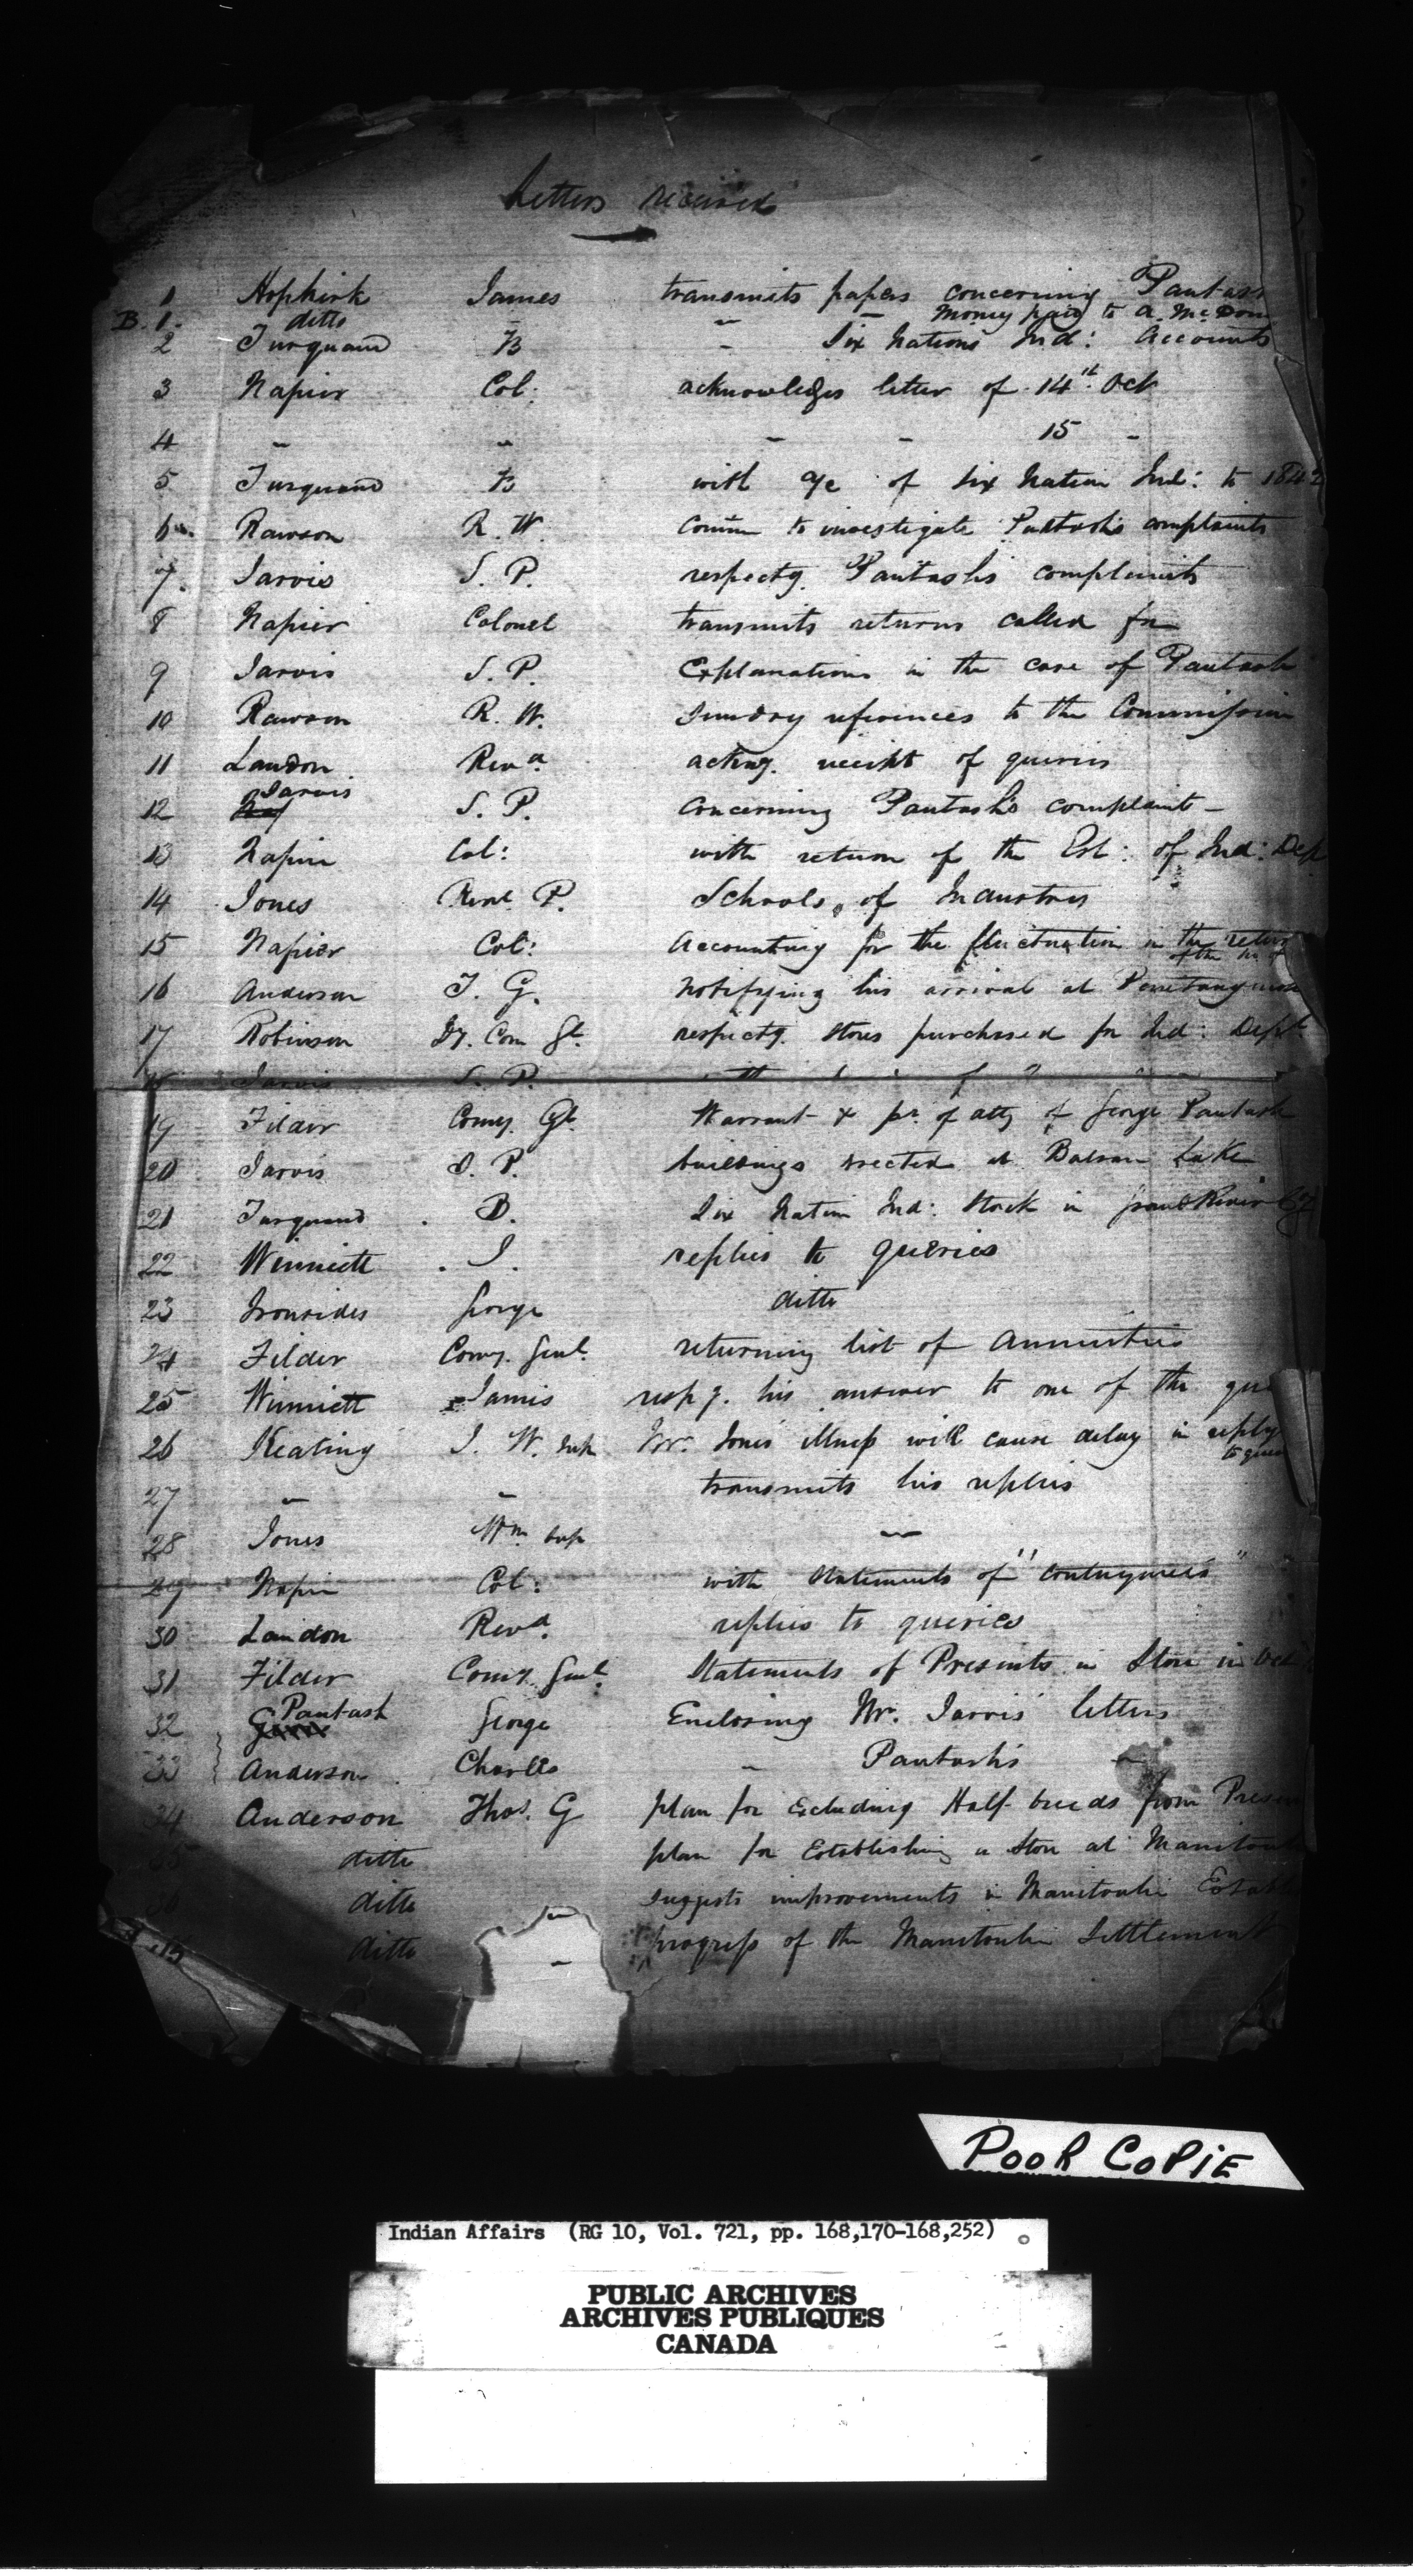 Letters received
1 Hopkirk James transmits papers concerning Pautash
B. 1. ditto " – Money paid to A. McDon
2 Turquand B " Six Nations Ind: Accounts
3 Napier Col: acknowledges letter of 14th Oct
4 " " " " 15 "
5 Turquand B with a/c of Six Nation Ind: to 1842
6. Rawson R. W. Comn to investigate Pautash's complaints
7. Jarvis S. P. respectg. Pautash's complaints
8 Napier Colonel transmits returns called for
9 Jarvis S. P. Explanations in the case of Pautash
10 Rawson R. W. Sundry references to the Commission
11 Landon Revd. ackng. receipt of queries
12 Jarvis S. P. Concerning Pautash's complaint –
13 Napier Col: with return of the Est: of Ind: Dep
14 Jones Revd. P. Schools of Industry
15 Napier Col: Accounting for the fluctuation in the return
of the
16 Anderson T. G. Notifying his arrival at Penetanguishe
17 Robinson Dy. Com Gl. respectg. stores purchased for Ind: Dept.
Jarvis S. P.
19 Filder Comy. Gl. Warrant & pr. of atty of George Pautash
20 Jarvis S. P. buildings erected at Balsam Lake
21 Turquand B. Six Nation Ind: Stock in Grand River Cy
22 Winniett J. replies to queries
23 Ironsides George ditto
24 Filder Comy. Genl. returning list of Annuities
25 Winniett James respg. his answer to one of the que
26 Keating J. W. Sup Mr. Jones illness will cause delay in reply
to quer
27 " " transmits his replies
28 Jones Wm. Sup "
29 Napier Col: with statements of "Contingencies"
30 Landon Revd. replies to queries
31 Filder Comy. Genl. Statements of Presents in Store in Oct
32 Pautash George Enclosing Mr. Jarvis' letters
33 Anderson Charles " Pautash's "
34 Anderson Thos. G plan for Excluding Half-breeds from Presen
35 ditto plan for Establishing a Store at Manitouli
36 ditto " suggests improvements in Manitoulin Establi
ditto " progress of the Manitoulin Settlement
POOR COPIE
Indian Affairs (RG 10, Vol. 721, pp. 168,170-168,252)
PUBLIC ARCHIVES
ARCHIVES PUBLIQUES
CANADA